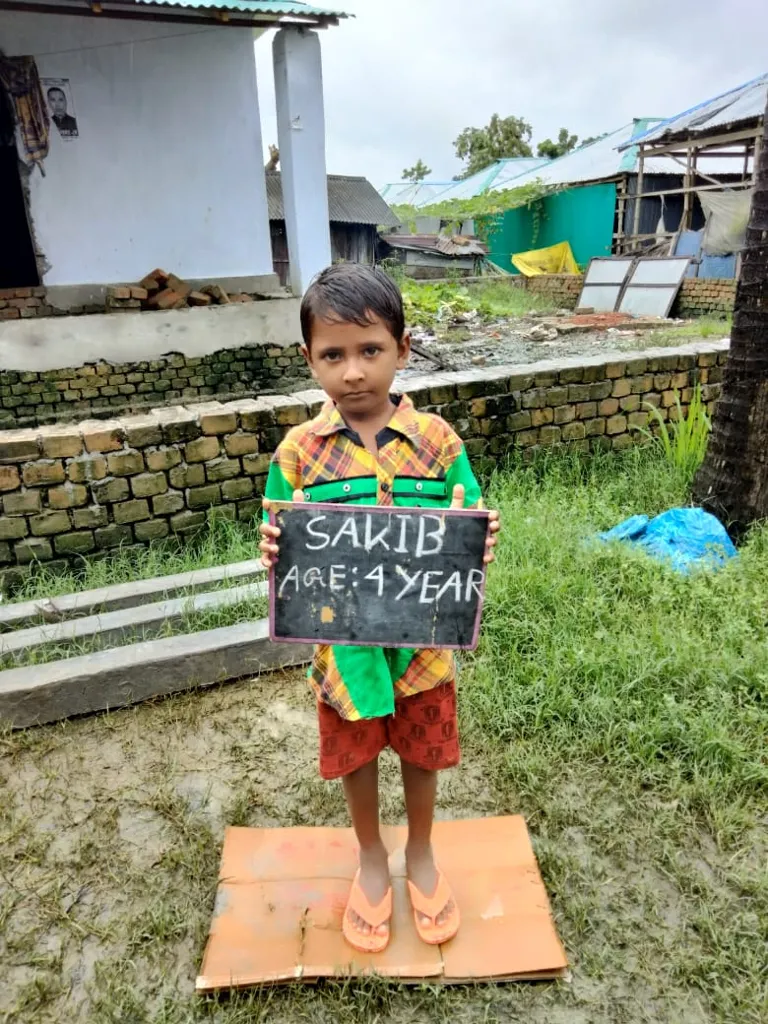 SAKIB
AGE: 4 YEAR